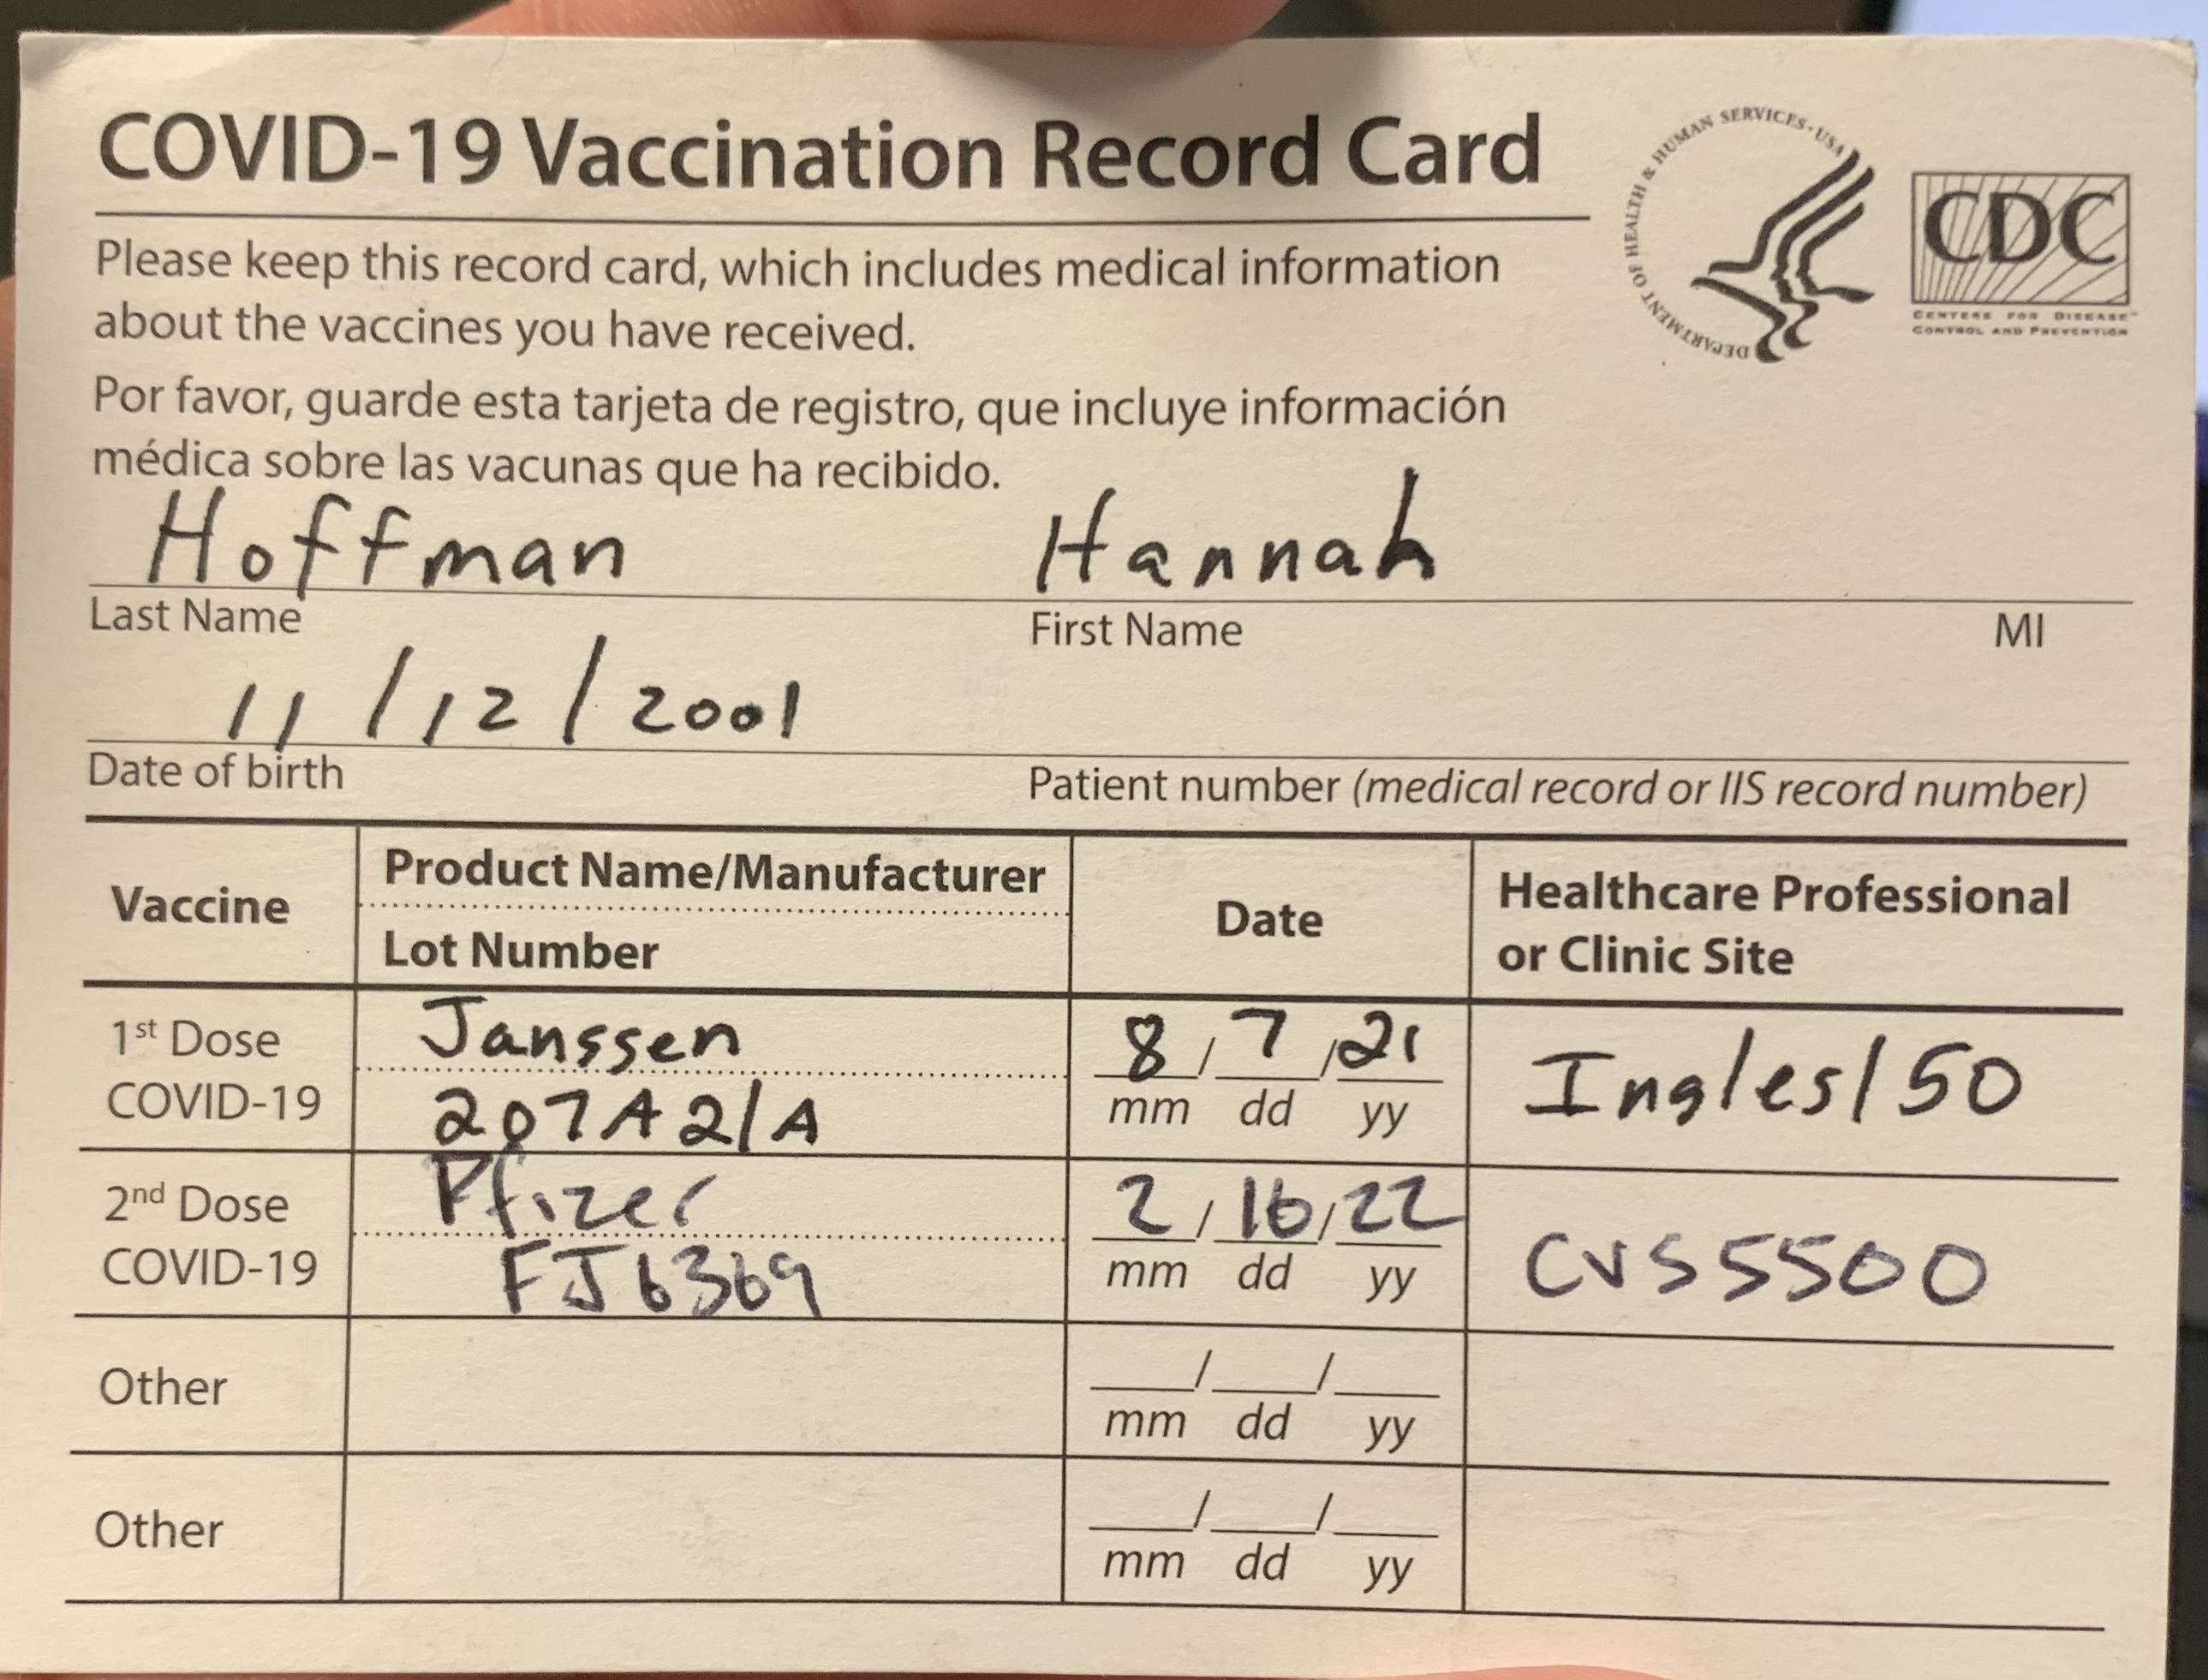 COVID-19 Vaccination Record Card
DEPARTMENT OF HEALTH & HUMAN SERVICES · USA
CDC
CENTERS FOR DISEASE™
CONTROL AND PREVENTION
Please keep this record card, which includes medical information
about the vaccines you have received.
Por favor, guarde esta tarjeta de registro, que incluye información
médica sobre las vacunas que ha recibido.
Hoffman Hannah
Last Name First Name MI
11/12/2001
Date of birth Patient number (medical record or IIS record number)
Vaccine
Product Name/Manufacturer
Lot Number
Date
Healthcare Professional
or Clinic Site
1st Dose
COVID-19
Janssen
207A21A
8/7/21
mm dd yy
Ingles/50
2nd Dose
COVID-19
Pfizer
FJ6369
2/16/22
mm dd yy
CVS 5500
Other
___/___/___
mm dd yy
Other
___/___/___
mm dd yy